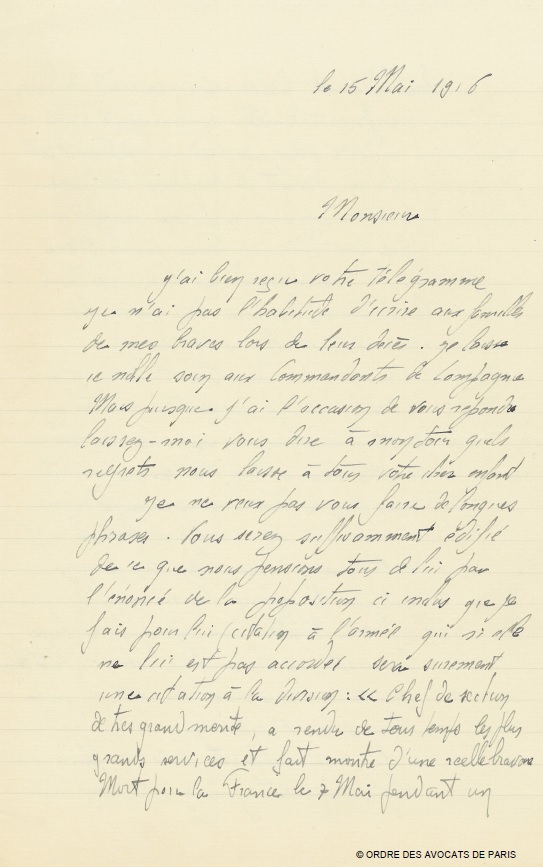 le 15 Mai 1916
Monsieur
j'ai bien reçu votre télégramme
je n'ai pas l'habitude d'écrire aux familles
de mes braves lors de leur décès. je laisse
ce noble soin aux Commandants de Compagnie
Mais puisque j'ai l'occasion de vous répondre
laissez-moi vous dire à mon tour quels
regrets nous laisse à tous votre cher enfant
je ne veux pas vous faire de longues
phrases. Vous serez suffisamment édifié
de ce que nous pensions tous de lui par
l'énoncé de la proposition ci inclus que je
fais pour lui (citation à l'armée qui si elle
ne lui est pas accordée sera surement
une citation à la division : << Chef de section
de très grand mérite, a rendu de tous temps les plus
grands services et fait montre d'une réelle bravoure
Mort pour la France le 7 Mai pendant un
© ORDRE DES AVOCATS DE PARIS